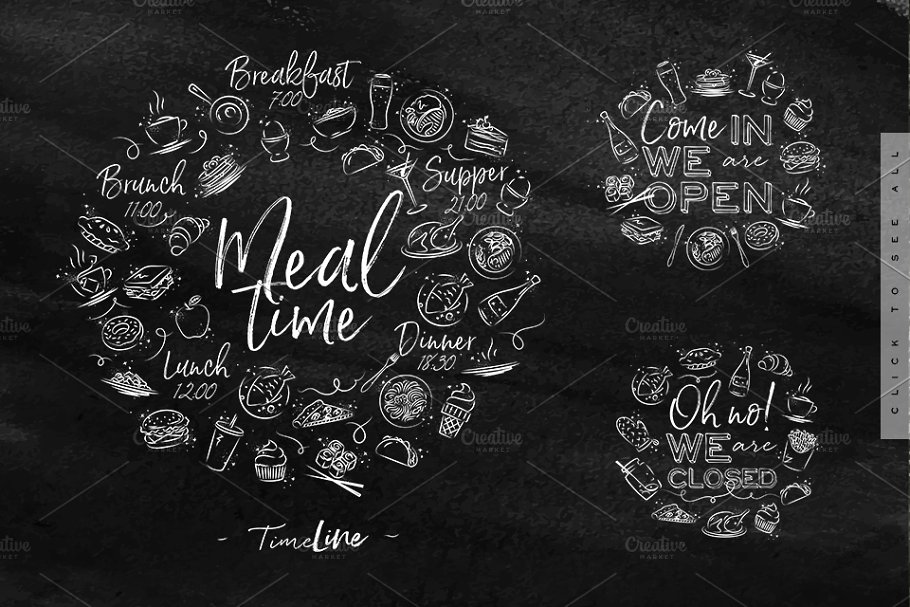 Breakfast
7:00
Brunch
11:00
Supper
21:00
Meal
time
Lunch
12:00
Dinner
18:30
- TimeLine -
Come IN
WE are
OPEN
Oh no!
WE are
CLOSED
CLICK TO SEE ALL
Creative
MARKET